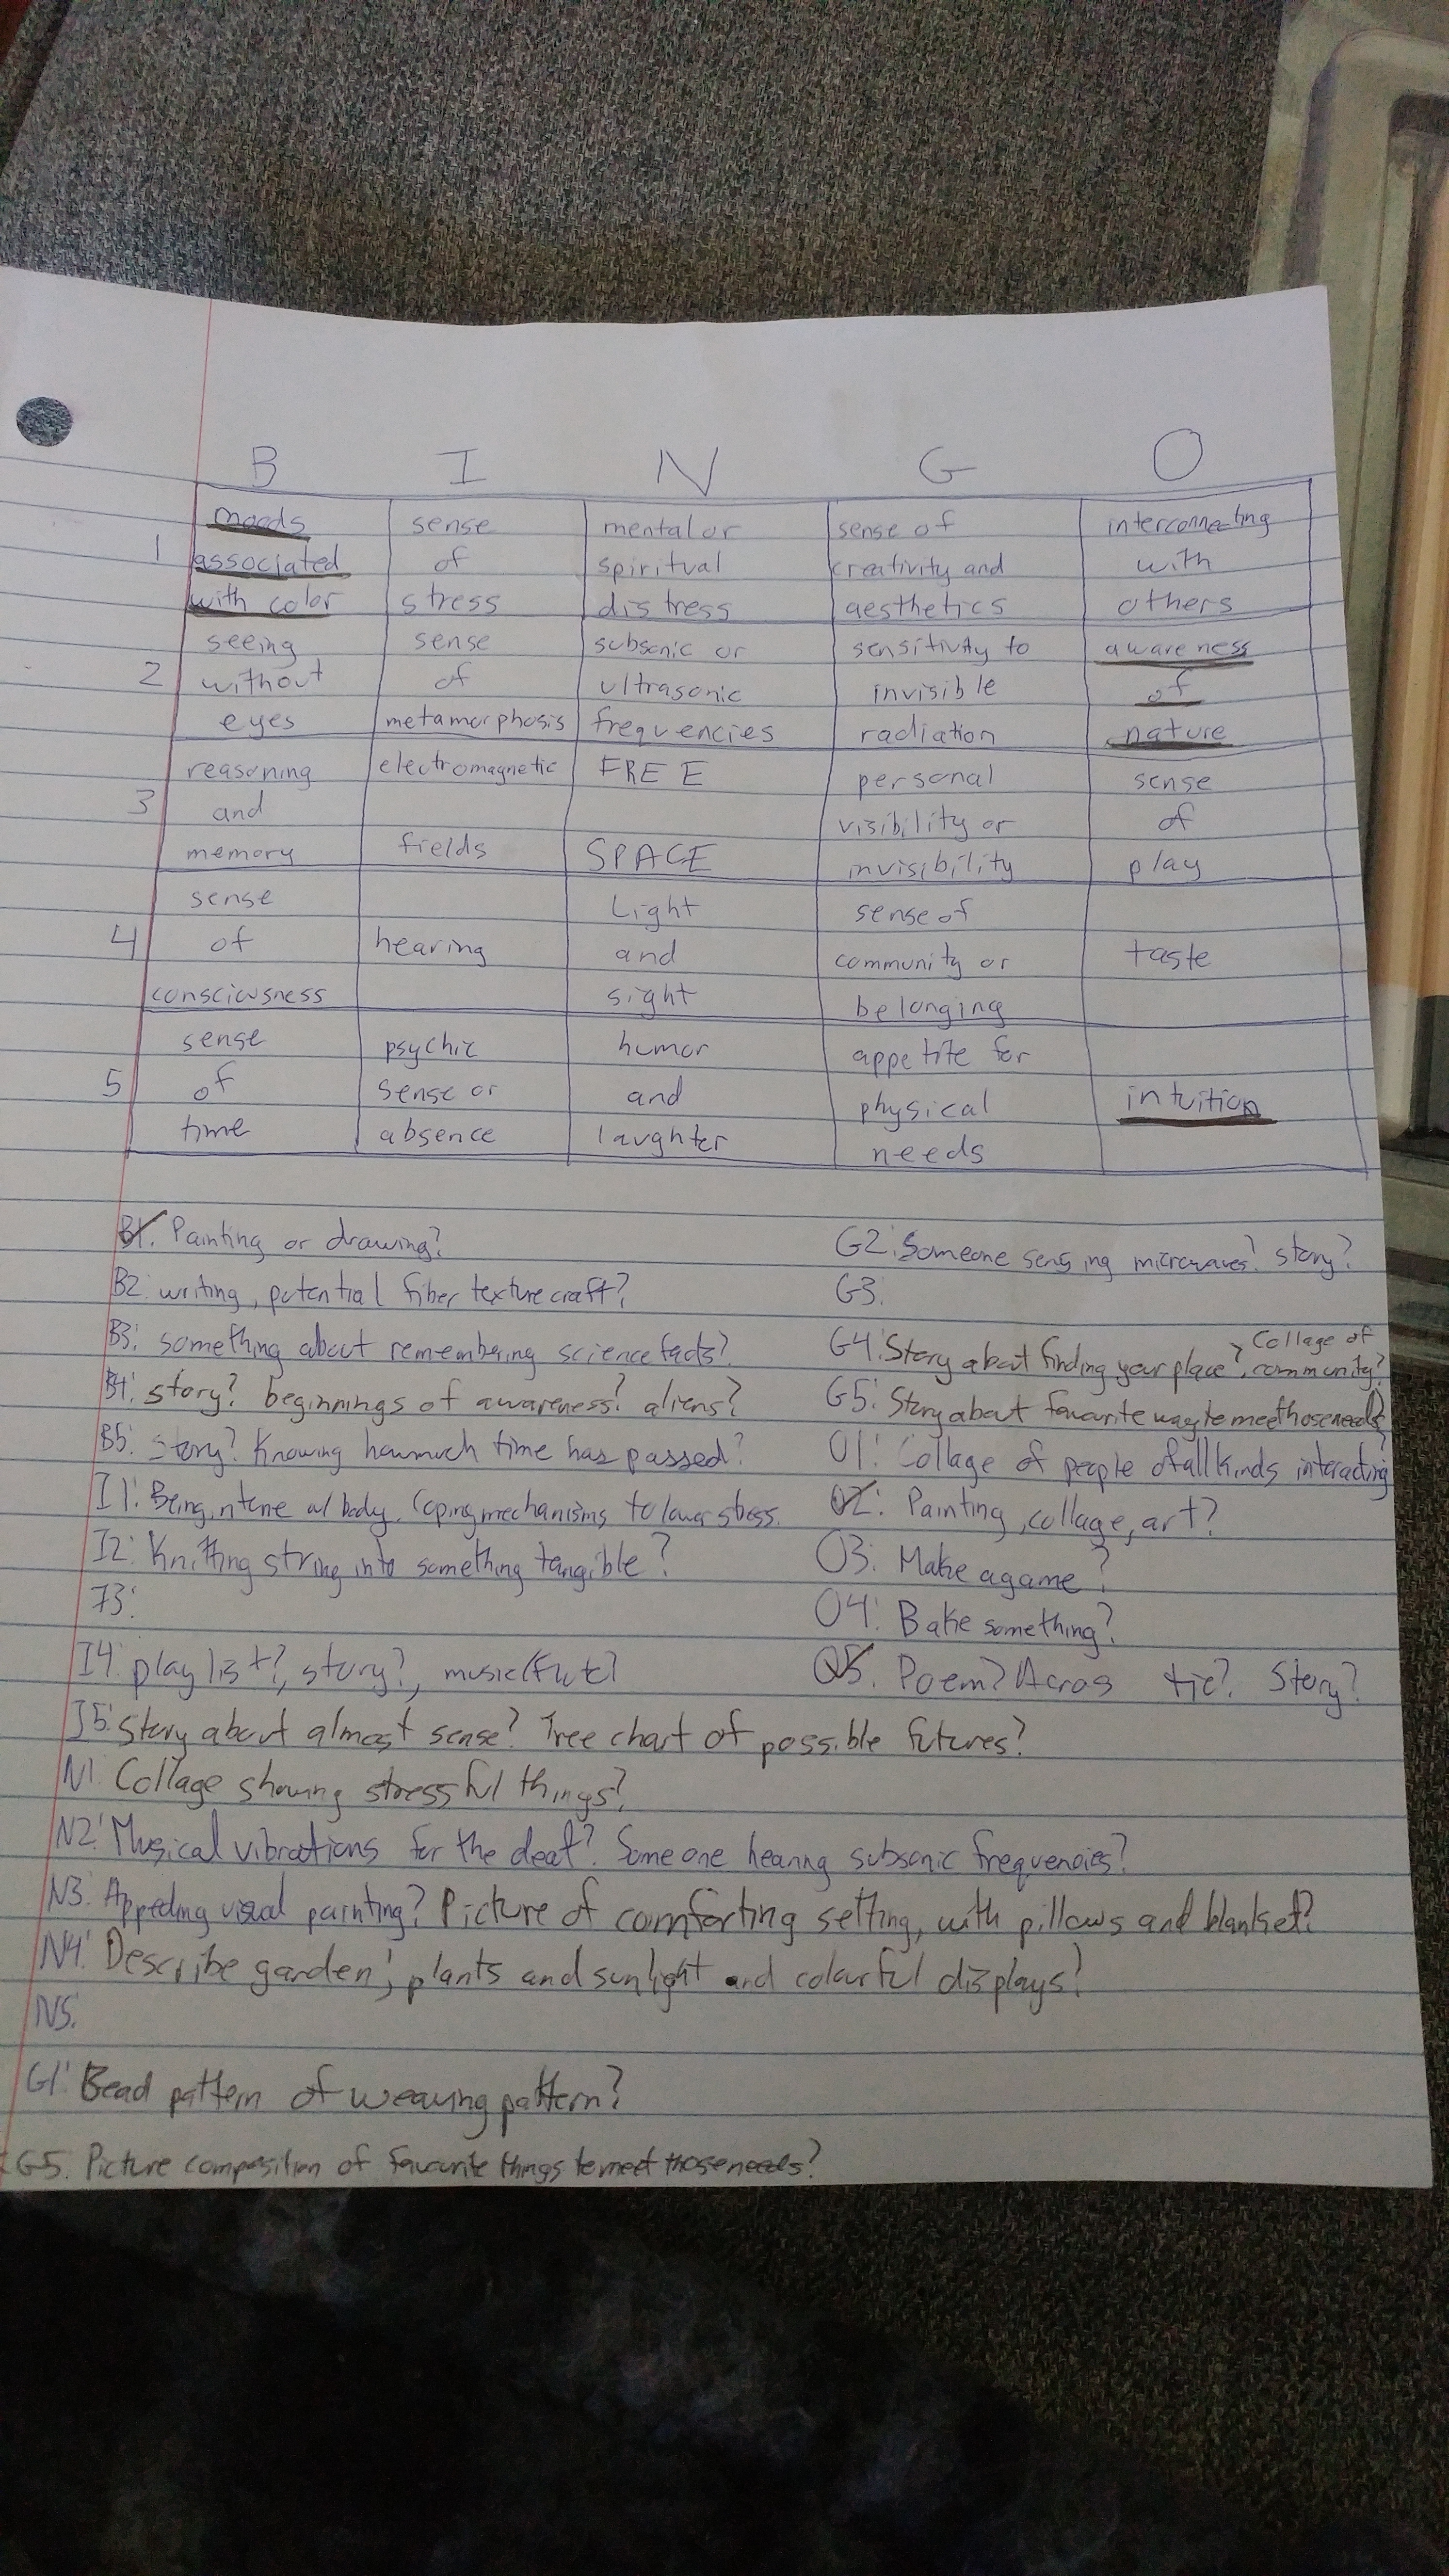 B I N G O
moods sense mental or sense of interconnecting
1 associated of spiritual creativity and with
with color stress distress aesthetics others
seeing sense subsonic or sensitivity to awareness
2 without of ultrasonic invisible of
eyes metamorphosis frequencies radiation nature
reasoning electromagnetic FREE personal sense
3 and visibility or of
memory fields SPACE invisibility play
sense Light sense of
4 of hearing and community or taste
consciousness sight belonging
sense psychic humor appetite for
5 of sense or and physical intuition
time absence laughter needs
B1. Painting or drawing?
B2: writing, potential fiber texture craft?
B3: something about remembering science facts?
B4: story? beginnings of awareness? aliens?
B5: story? Knowing how much time has passed?
I1: Being in tune w/ body. Coping mechanisms to lower stress.
I2: Knitting string into something tangible?
I3:
I4: playlist?, story?, music (flute)
I5: Story about almost sense? Tree chart of possible futures?
N1: Collage showing stressful things?
N2: Musical vibrations for the deaf? Someone hearing subsonic frequencies?
N3: Appealing visual painting? Picture of comforting setting, with pillows and blanket?
N4: Describe garden, plants and sunlight and colourful displays?
N5.
G1: Bead pattern of weaving pattern?
G5. Picture composition of favourite things to meet those needs?
G2: Someone sensing microwaves? story?
G3:
G4: Story about finding your place?, Collage of community?
G5: Story about favourite way to meet those needs?
O1: Collage of people of all kinds interacting
O2: Painting, collage, art?
O3: Make a game?
O4: Bake something?
O5. Poem? Acros tic? Story?